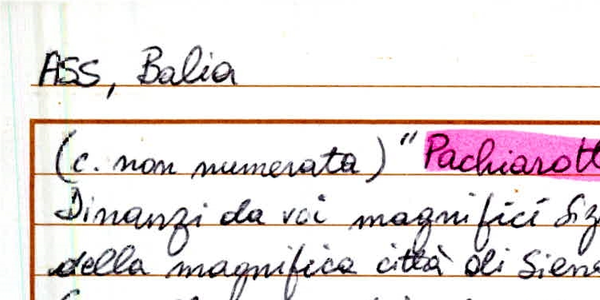 ASS, Balia
(c. non numerata) "Pachiarott
Dinanzi da voi magnifici Siz
della magnifica città di Siena